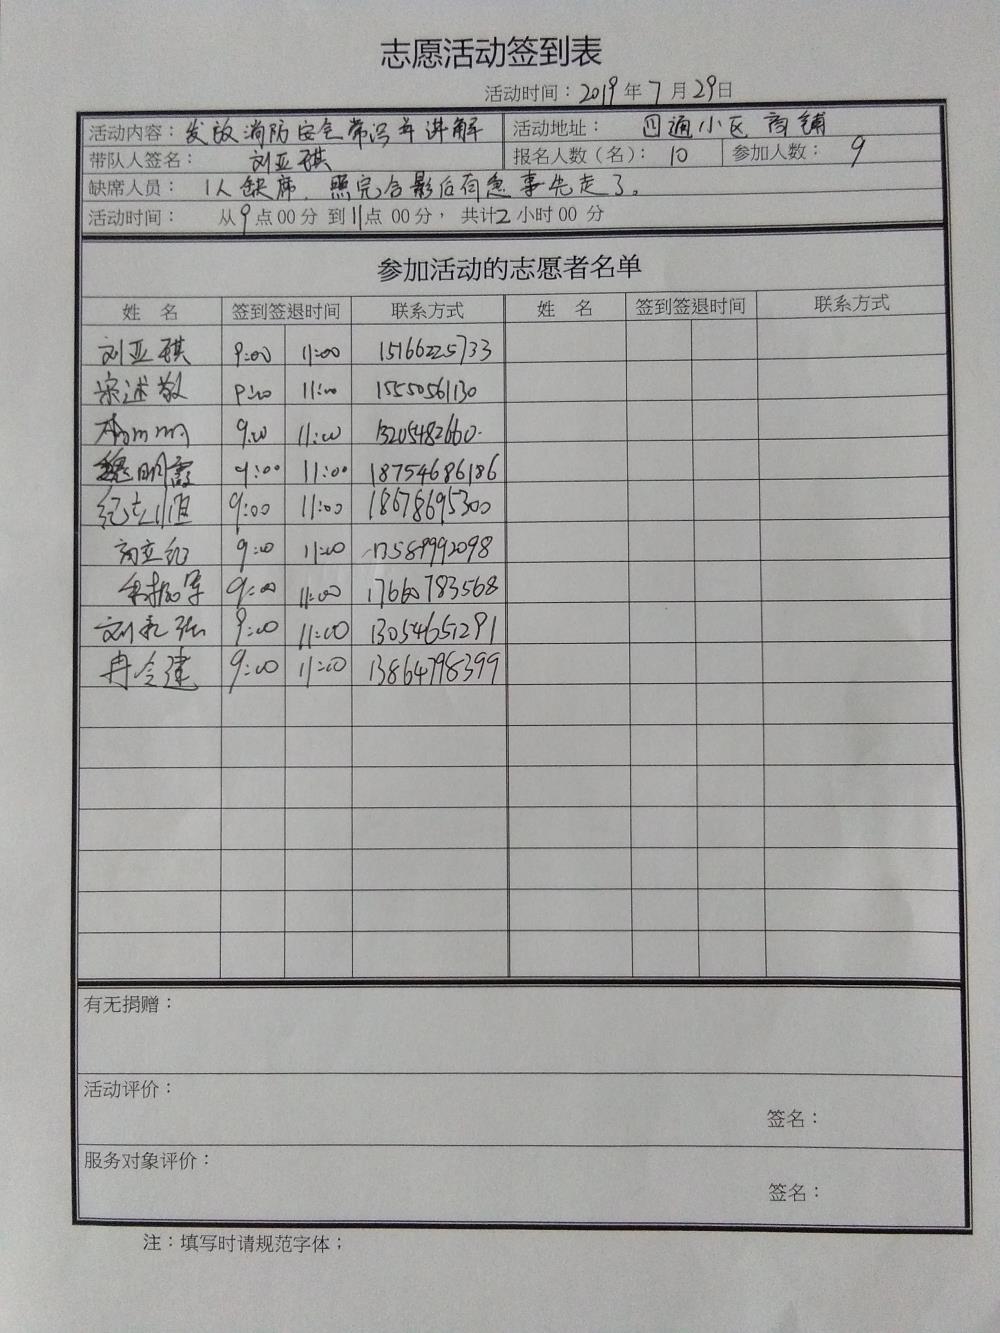 志愿活动签到表
活动时间：2019年7月29日
活动内容：发放消防安全常识并讲解 活动地址： 四通小区商铺
带队人签名： 刘亚琪 报名人数（名）： 10 参加人数： 9
缺席人员： 1人缺席，照完合影后有急事先走了。
活动时间： 从9点00分 到11点 00分， 共计2 小时00 分
参加活动的志愿者名单
姓 名 签到签退时间 联系方式 姓 名 签到签退时间 联系方式
刘亚琪 9:00 11:00 15166225733
宋述敬 9:00 11:00 15550561130
9:00 11:00 13205482660
魏明霞 9:00 11:00 18754686186
9:00 11:00 18678695300
9:00 11:00 13589992098
9:00 11:00 17660783568
刘永强 9:00 11:00 13054651291
冉令建 9:00 11:00 13864798399
有无捐赠：
活动评价：
签名：
服务对象评价：
签名：
注：填写时请规范字体；